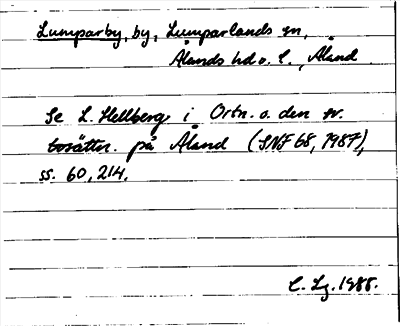 Lumparby, by, Lumparlands sn,
Ålands hd o. l., Åland.
Se L. Hellberg i Ortn. o. den sv.
bosättn. på Åland (SNF 68, 1987),
ss. 60, 214.
C. Lg. 1988.